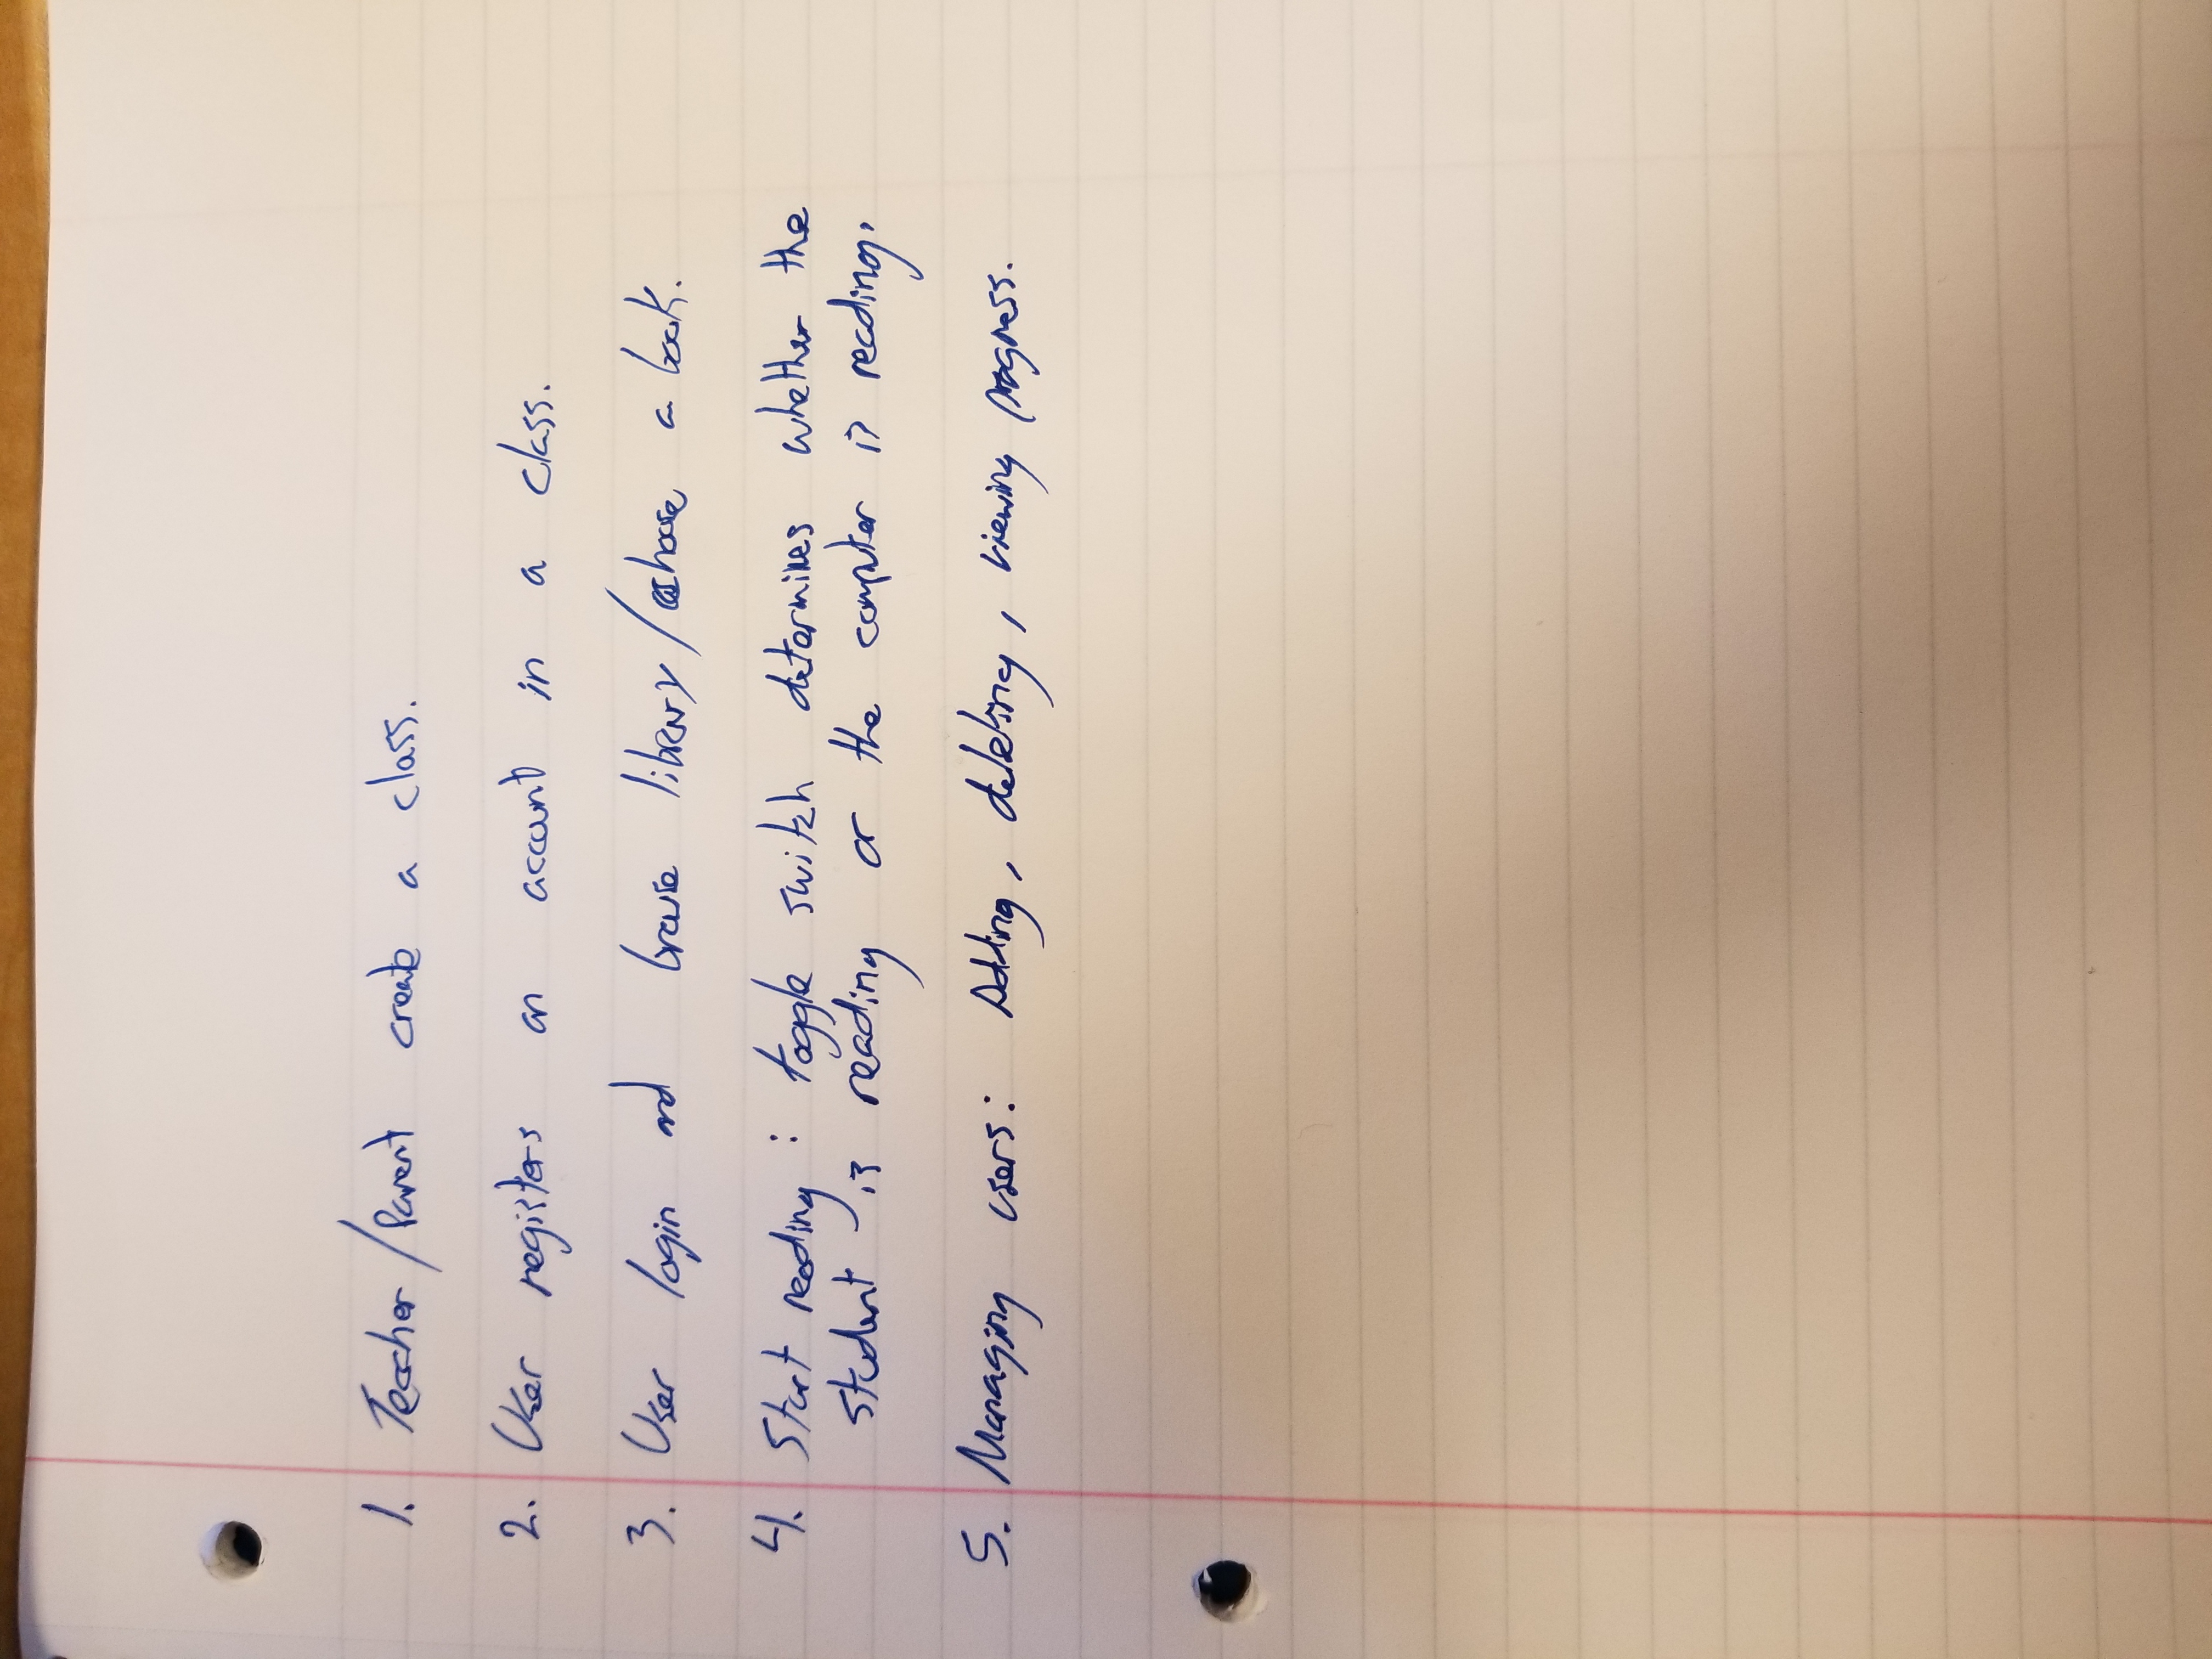 1. Teacher/Parent create a class.
2. User registers an account in a class.
3. User login and browse library/choose a book.
4. Start reading : toggle switch determines whether the
student is reading or the computer is reading.
5. Managing users: Adding, deleting, viewing progress.